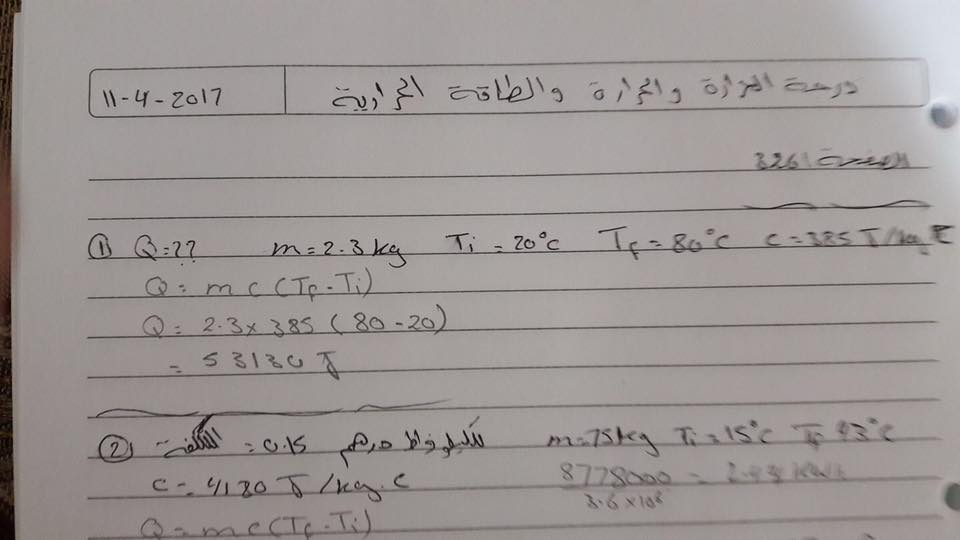 11-4-2017
درجة الحرارة والحرارة والطاقة الحرارية
الصفحة 326
① Q=?? m=2.3kg Ti=20°C Tf=80°C C=385 J/kg.C
Q= mc(Tf-Ti)
Q= 2.3×385 (80-20)
= 53130 J
② التكلفة = 0.15 درهم m=75kg Ti=15°C Tf 43°C
C=4180 J/kg.C 8778000/3.6×10⁶ =
Q=mc(Tf-Ti)